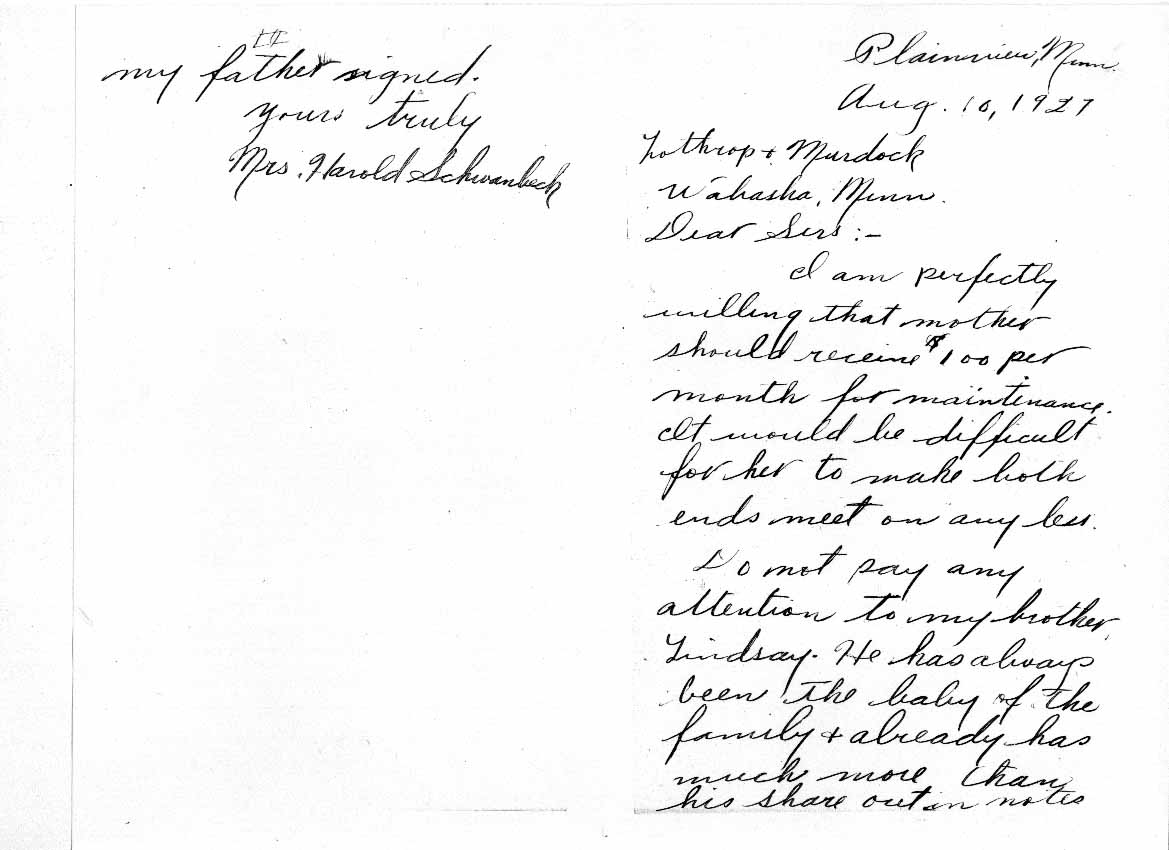 Plainview, Minn.
Aug. 10, 1927
Lothrop & Murdock
Wabasha, Minn.
Dear Sirs :-
I am perfectly
willing that mother
should receive $100 per
month for maintenance.
It would be difficult
for her to make both
ends meet on any less.
Do not pay any
attention to my brother
Lindsay. He has always
been the baby of the
family & already has
much more than
his share out in notes
my father signed.
Yours truly
Mrs. Harold Schwanbeck